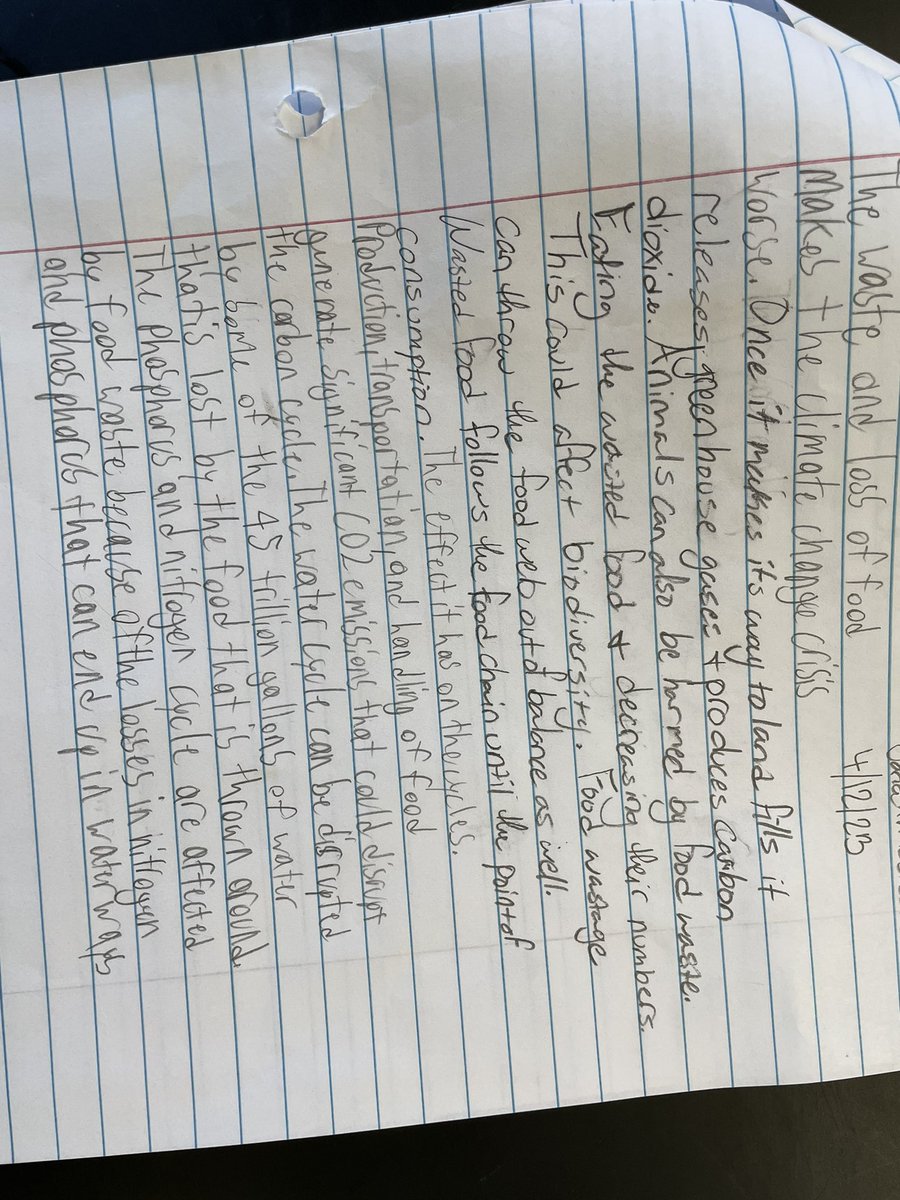 4/12/23
The waste and loss of food
Makes the climate change crisis
Worse. Once it makes its way to land fills it
releases greenhouse gases & produces carbon
dioxide. Animals can also be harmed by food waste.
Eating the wasted food & decreasing their numbers.
This could afect biodiversity. Food wastage
can throw the food web out of balance as well.
Wasted food follows the food chain until the point of
consumption. The effect it has on the cycles.
Production, transportation, and handling of food
generate significant CO2 emissions that could disrupt
the carbon cycle. The water cycle can be disrupted
by some of the 45 trillion gallons of water
that is lost by the food that is thrown around.
The phosphorus and nitrogen cycle are affected
by food waste because of the losses in nitrogen
and phosphorus that can end up in water ways